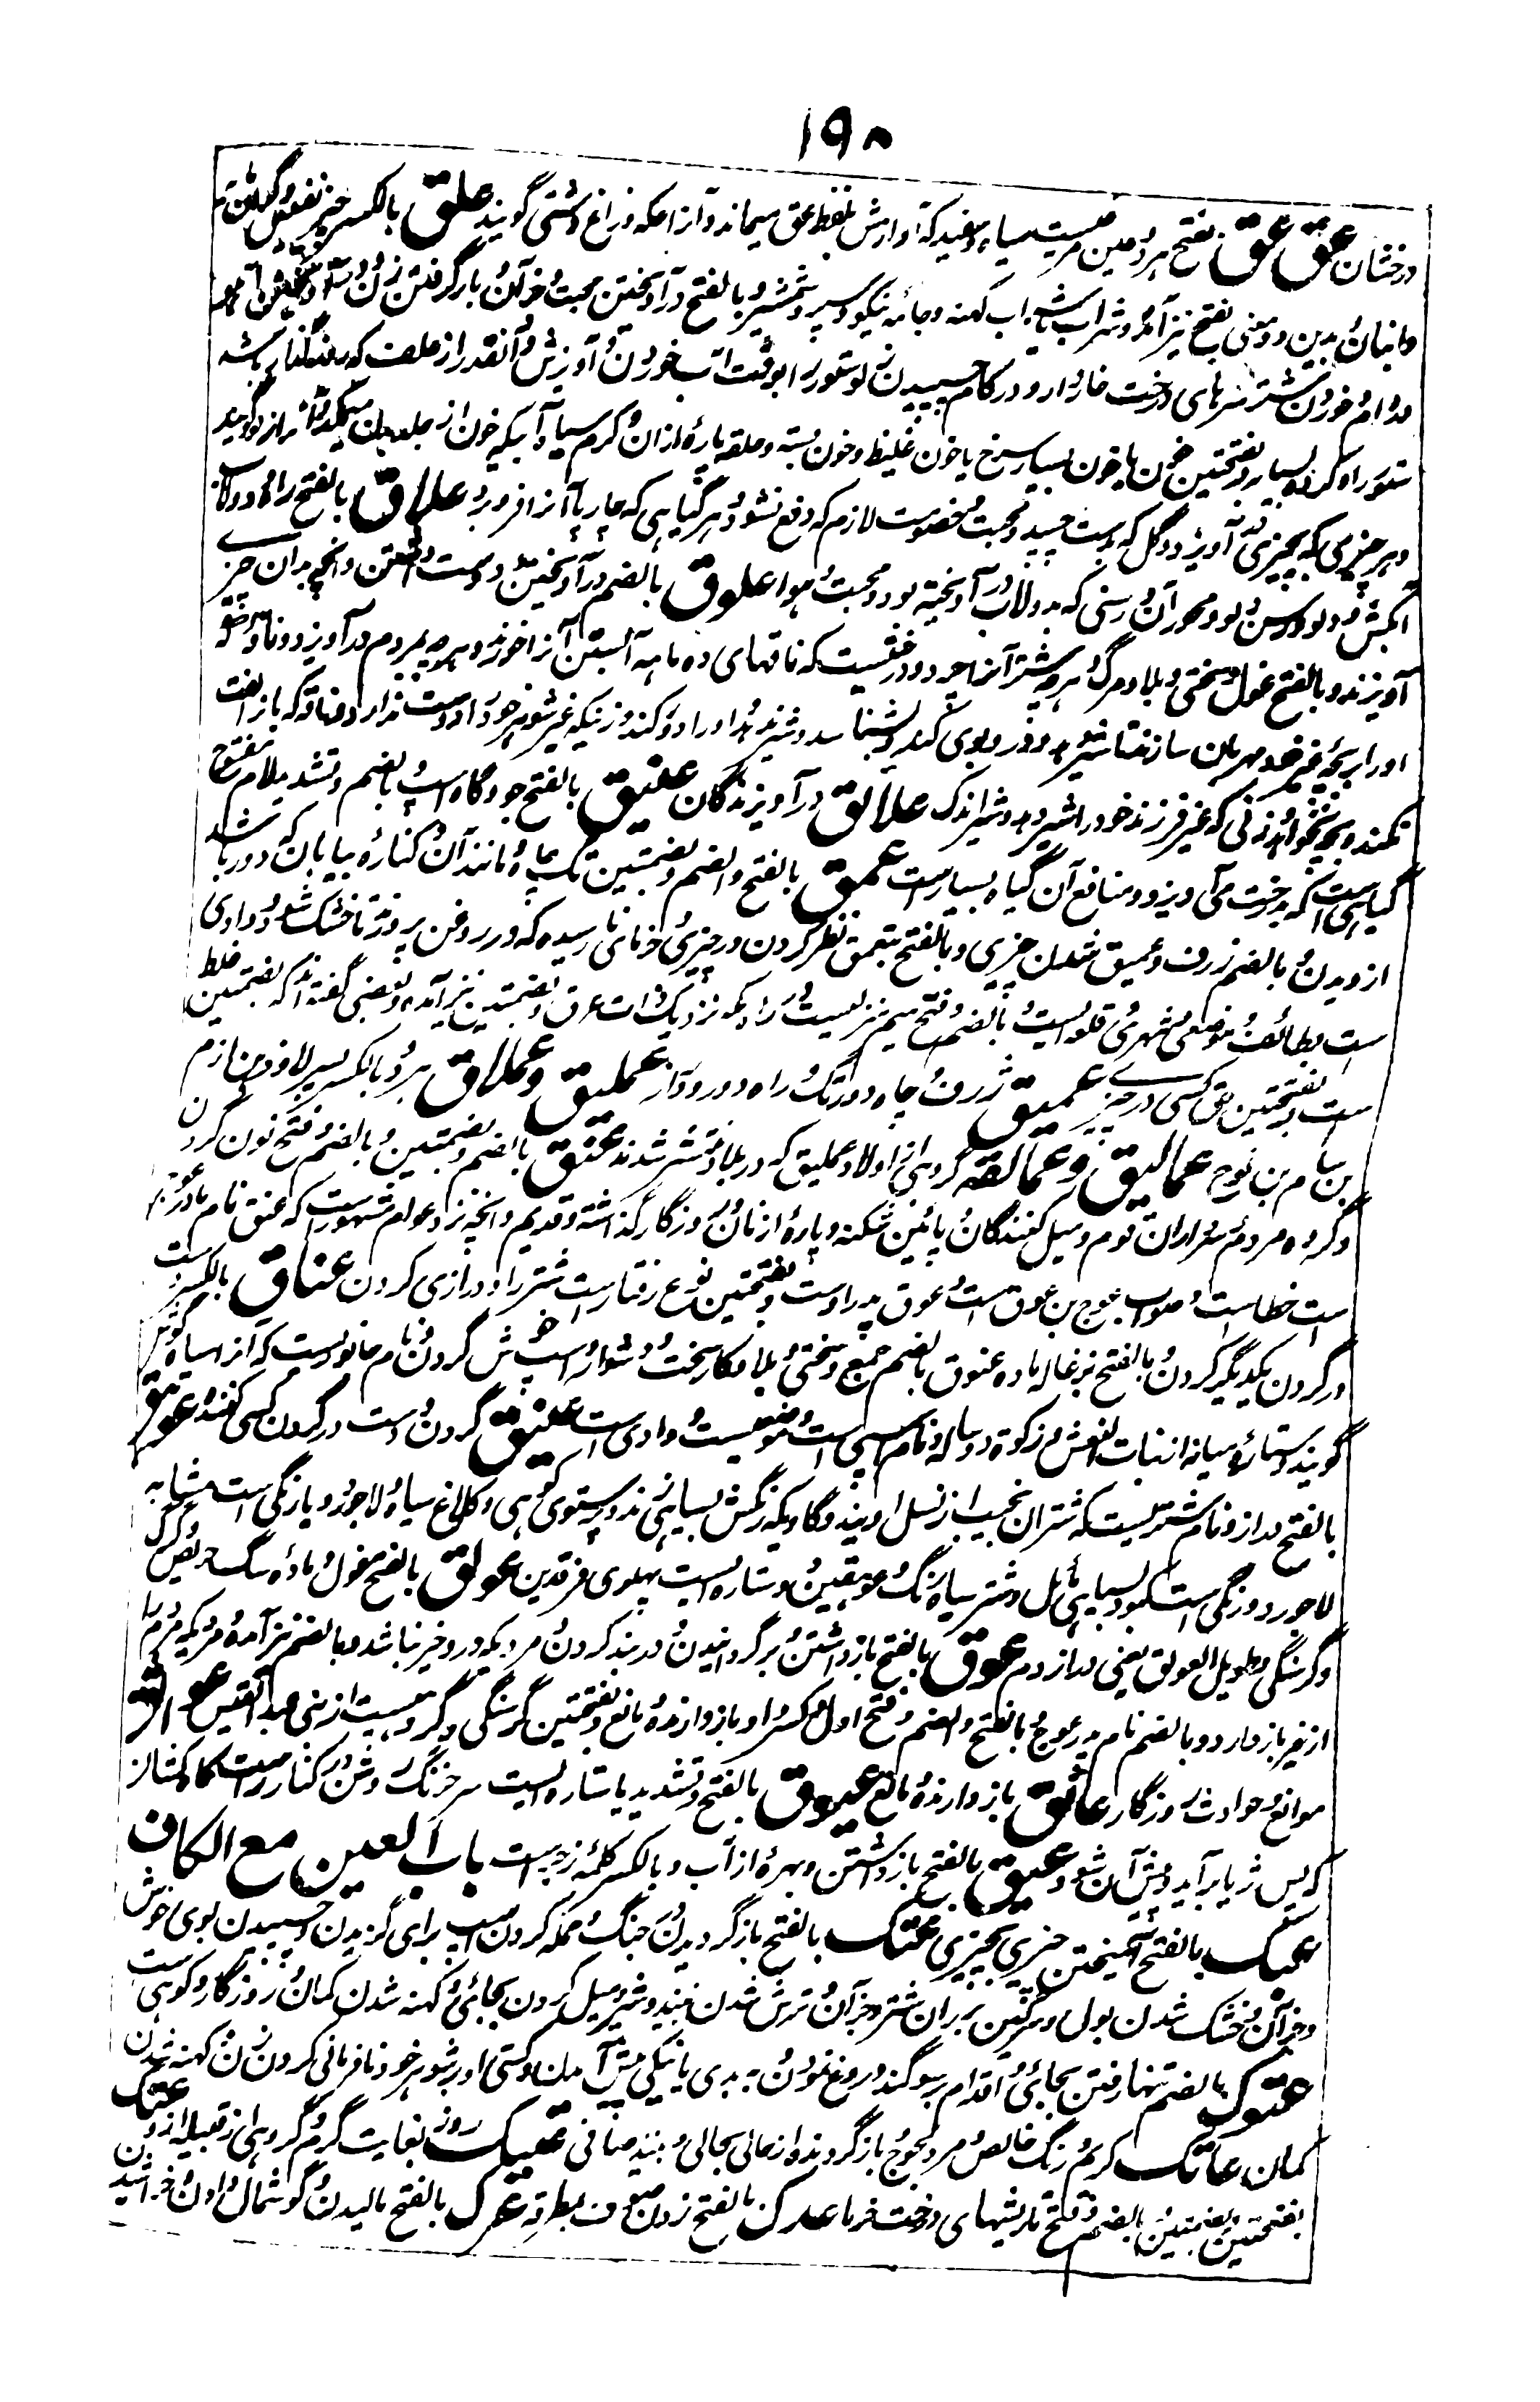 ۱۹۸
درخشان عق عق بفتح هر دو عین مرغیست سیاه و سفید که آوازش بلفظ عق میماند و آنرا عکه و زاغ دشتی گویند علق بالکسر چیز نفیس و گرانمایه
و انبان بدین دو معنی بفتح نیز آمده و شراب یا شراب کهنه و جامه نیکو و سپر و شمشیر و بالفتح درآویختن محبت و جز آن و بار گرفتن زن و
مدام و خوردن شتر سرهای درخت خاردار و در کام چسپیدن زلو ستور را بوقت آب خوردن و آویزش و آنقدر از علف که بسنده باشد
ستور را و کرده بسیار و بفتحتین خون یا خون بسیار سرخ یا خون غلیظ و خون بسته و علقه پارۀ ازان و کرم سیاه آبیکه خون از میمکد و آنرا زلو گویند
و هر چیزی که بچیزی در آویزد و گل که بدست چسپد و محبت و خصومت لازم که دفع نشود و هر گیاهی که چارپا آنرا فرو برد علاق بالفتح
آبکش و دلو و رسن دلو و محور آن و رسنی که بدولاب درآویخته بود و محبت و هوا علوق بالضم درآویختن و دوست داشتن و آنچه بدان چیزے
آویزند و بالفتح غول و سختی و بلا و مرگ و هرچه شتر آنرا چرد و درختیست که ناقهای ده ماهه آبستن آنرا خورند و هرچه بمردم درآویزد و ناقه که
او را بر بچه غیر خود مهربان سازند تا شیر دهد و بوی کند و بشناسد و شیر ندهد و او را دور کند و زنیکه غیر شوهر خود را دوست ندارد و ناقه که باز الفت
نکند و بچه نخواهد و زنی که غیر فرزند خود را شیر دهد و شیر اندک علائق درآویزندگان علیق بالفتح جو و کاه اسپ و بالضم و تشدید لام مفتوح
گیاهی است که بدرخت می‌آویزد و منافع آن گیاه بسیارست عمق بالفتح و الضم و بضمتین تک چاه و مانند آن و کنارۀ بیابان که دور باشد
از دیدن و بالضم ژرف و عمیق شدن چیزی و بالفتح بتعمق نظر کردن در چیزی و خرمای نارسیده که در روغن پرورند تا خشک شود و وادی
ست بطائف و موضعی و شهری و قلعه ایست و بالضم و فتح میم نیز منزلیست در راه مکه نزدیک ذات عرق و بضمتین نیز آمده و بعضی گفته اند که بضمتین غلط
ست و بفتحتین حق کسی در چیزے عمیق ژرف و چاه دور تک و راه دور و دراز عملیق و عملاق هر دو بالکسر پسر لاوذ بن ارم
بن سام بن نوح عمالیق و عمالقه گروهی از اولاد عملیق که در بلاد منتشر شدند عنق بالضم و بضمتین و بالضم و فتح نون گردن
و گروه مردم و سرداران قوم و میل کنندگان و پائین شکنبه و پارۀ از زمان و روزگار گذشته و قدیم و آنچه نزد عوام مشهورست که عنق نام مادر عوج
است خطاست و صواب عوج بن عوق است و عوق پدر اوست و بفتحتین نوع رفتاریست شتر را و درازی گردن عناق بالکسر دست
در گردن یکدیگر کردن و بالفتح بزغاله ماده عنوق بالضم جمع و سختی و بلا و کار سخت و دشوار و اسپ خوش گردن و نام جانوریست که آنرا سیاه گوش
گویند و ستارۀ میانه از بنات النعش و زکوة دوساله و نام اسپی است و موضعیست و وادی است عنیق گردن و دست در گردن کسی کننده عوهق
بالفتح دراز و نام شتریست که شتران نجیب از نسل اویند و گاویکه رنگش بسیاهی زند و پرستوی کوهی و کلاغ سیاه و لاجورد یا رنگی است مشابه
لاجورد و رنگی است کبود بسیاهی مائل و شتر سیاه رنگ عوهقین دو ستاره ایست پهلوی فرقدین عولق بالفتح غول و ماده سگ حریص و گرگ
و گرسنگی و طویل العولق یعنی دراز دم عوق بالفتح بازداشتن و برگردانیدن و در بند کردن و مردیکه درو خیر نباشد و بالضم نیز آمده و مردیکه مردم را
از خیر باز دارد و بالضم نام پدر عوج و بالفتح و الضم و فتح اول و کسر واو بازدارنده و مانع و بفتحتین گرسنگی و گروهیست از بنی عبدالقیس عوائق
موانع و حوادث روزگار عائق بازدارنده و مانع عیوق بالفتح و تشدید یا ستاره ایست سرخ رنگ و روشن در کنار راست کاهکشان
که پس ثریا برآید و پیش آن شود عیق بالفتح بازداشتن و بهرۀ از آب و بالکسر کلمۀ زجرست باب العین مع الکاف
عبک بالفتح آمیختن چیزی بچیزی عتک بالفتح بازگردیدن در جنگ و حمله کردن اسپ برای گزیدن و چسپیدن بوی خوش
و جز آن و خشک شدن بول و سرگین بر ران شتر و جز آن و ترش شدن نبیذ و شیر و میل کردن بجائی و کهنه شدن کمان و روزگار و کوهی است
عتوک بالضم تنها رفتن بجائی و اقدام بر سوگند دروغ نمودن و به بدی یا نیکی پیش آمدن و کستی و بر شوهر خود نافرمانی کردن زن و کهنه شدن
کمان عاتک کریم و رنگ خالص و مرد لجوج و بازگردنده از حالی بحالی و نبیذ صافی عتیک روز بغایت گرم و گروهی از قبیله ازد عثک
بفتحتین و بضمتین و بالضم و فتح ثا ریشهای درخت خرما عدک بالفتح زدن صوف بمطرقه عرک بالفتح مالیدن و گوشمال دادن و خراشیدن